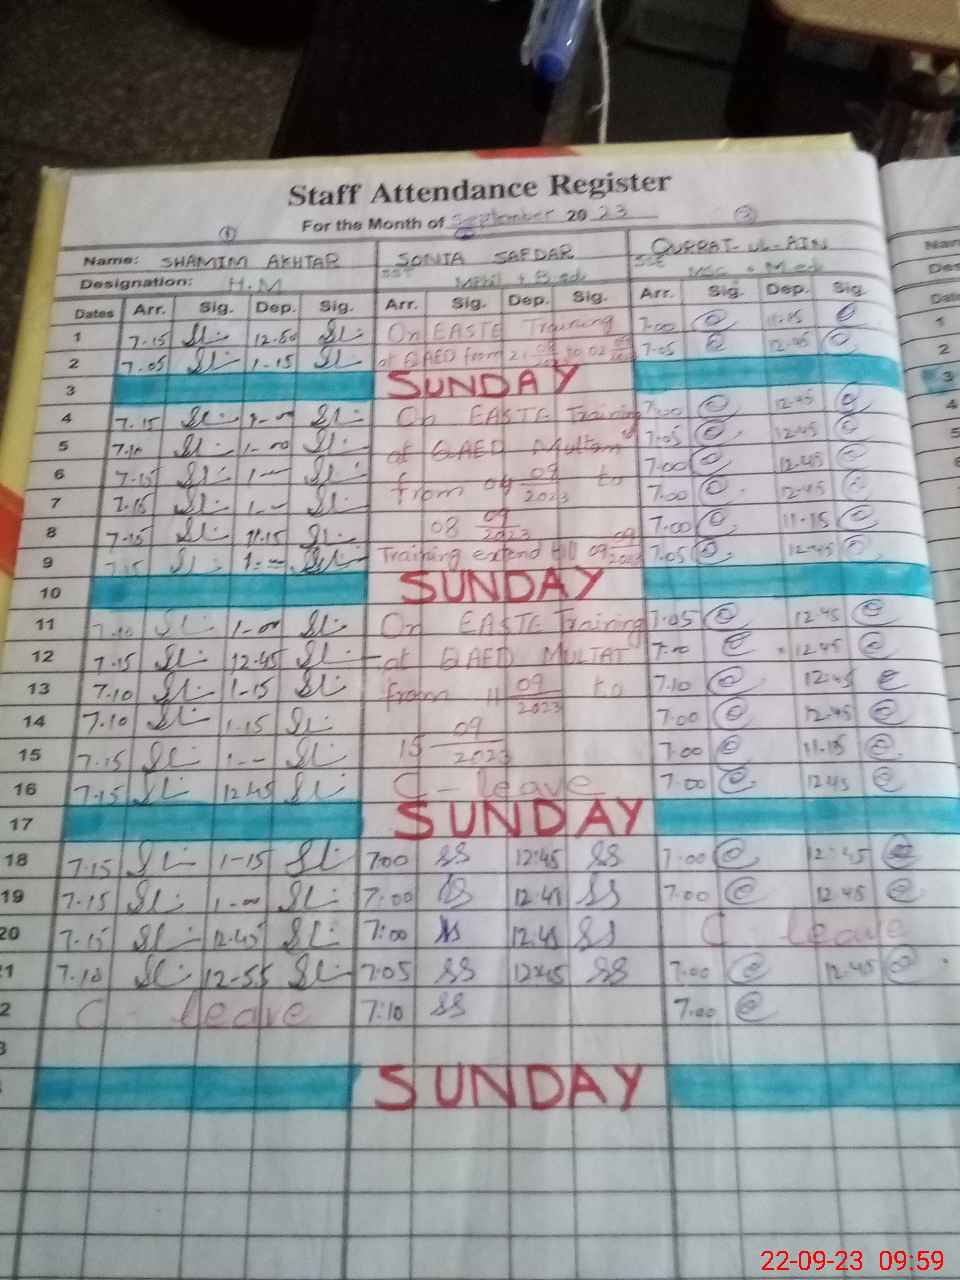 Staff Attendance Register
For the Month of September 20 23
Name: SHAMIM AKHTAR SONIA SAFDAR QURRAT-UL-AIN
SST SSE
Designation: H.M MPhil + B.ed MSc + M.ed
Dates Arr. Sig. Dep. Sig. Arr. Sig. Dep. Sig. Arr. Sig. Dep. Sig.
1 7.15 12.50 On EASTE Training 7.00 11.15
2 7.05 1-15 at QAED from to 02 7.05 12.45
3 SUNDAY
4 7.15 On EASTE Training 7.00 12.45
5 7.10 1-00 at QAED Multan 7.05 12.45
6 7.15 1- from 04 09/2023 to 7.00 12.45
7 7.15 1- 7.00 12.45
8 7.15 11.15 08 09/2023 7.00 11-15
9 7.15 Training extend till 09 09/2023 7.05 12.45
10 SUNDAY
11 7.10 1-00 On EASTE Training 7.05 12.45
12 7.15 12.45 at QAED MULTAT 7.00 12.45
13 7.10 1-15 from 11 09/2023 to 7.10 12.45
14 7.10 1.15 7.00 12.45
15 7.15 1-- 15 09/2023 7.00 11-15
16 7.15 12.45 C - leave 7.00 12.45
17 SUNDAY
18 7.15 1-15 7:00 SS 12:45 SS 7.00 12:45
19 7.15 1-00 7:00 SS 12:45 SS 7.00 12.45
20 7.15 12.45 7:00 12:45 SS C - leave
21 7.10 12-55 7:05 SS 12:45 SS 7.00 12.45
2 C - leave 7:10 SS 7.00
SUNDAY
22-09-23 09:59